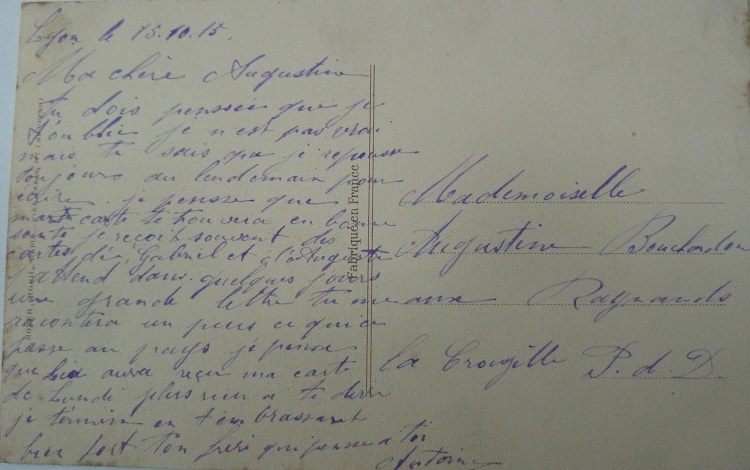 Lyon le 15.10.15.
Ma chère Augustine
tu dois pensseé que je
t'oublie je n'est pas vrai
mais tu sais que je repousse
toujours au lendemain pour
écrire. je pensse que
carte te trouvera en bonne
santé reçoit souvent des
cartes de Gabriel et Auguste
j'attend dans quelques jours
une grande lettre tu me
racontera un peus ce qui ce
passe au pays je pensse
que aura reçu ma carte
de Lundi plus rien a te dire
je termine en t'embrassant
bien fort Ton frère qui pensse a toi
Antoine
Fabriqué en France
Mademoiselle
Augustine Bouchardon
aux Raynards
la P. d. D.